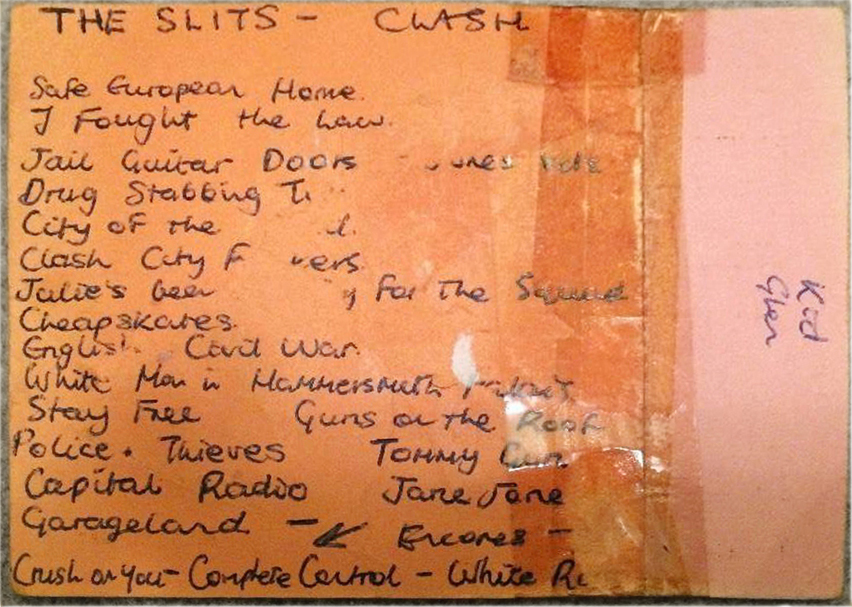 THE SLITS - CLASH
Safe European Home.
I Fought the Law.
Jail Guitar Doors
Drug Stabbing Ti
City of the
Clash City
Julie's been For The Squad
Cheapskates.
English Civil War.
White Man in Hammersmith
Stay Free Guns on the Roof
Police. Thieves Tommy Gun
Capital Radio Jane Jane
Garageland - ↙ Encores -
Crush on You - Complete Control - White Ri
Kid
Glen